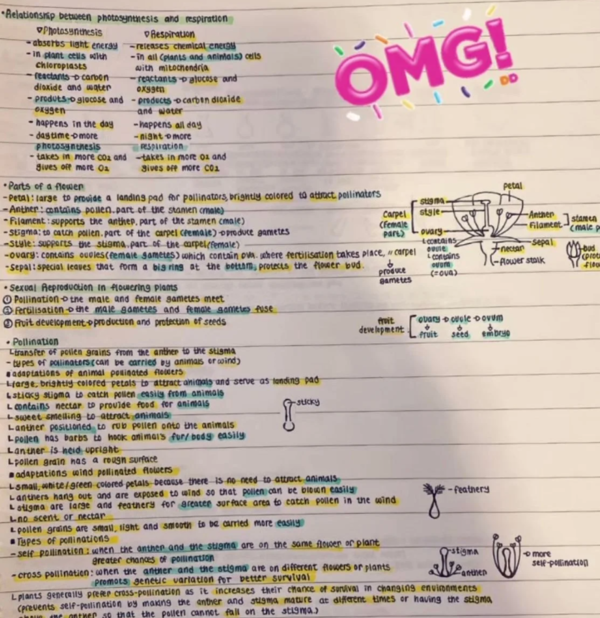 •Relationship between photosynthesis and respiration
▽Photosynthesis
- absorbs light energy
- in plant cells with
chloroplasts
- reactants → carbon
dioxide and water
- produts → glucose and
oxygen
- happens in the day
- daytime → more
photosynthesis
- takes in more CO2 and
gives off more O2
▽Respiration
- releases chemical energy
- in all (plants and animals) cells
with mitochondria
- reactants → glucose and
oxygen
- products → carbon dioxide
and water
- happens all day
- night → more
respiration
- takes in more O2 and
gives off more CO2
OMG!
•Parts of a flower
- Petal: large to provide a landing pad for pollinators, brightly colored to attract pollinators
- Anther: contains pollen, part of the stamen (male)
- Filament: supports the anther, part of the stamen (male)
- Stigma: to catch pollen, part of the carpel (female) → produce gametes
- Style: supports the stigma, part of the carpel (female)
- Ovary: contains ovules (female gametes) which contain ova, where fertilisation takes place,
- Sepal: special leaves that form a big ring at the bottom, protects the flower bud.
= carpel
↓
produce
gametes
petal
Carpel
(female
part)
stigma
style
ovary
↳ contains
ovule
↳ contains
ovum
(=ova)
Anther
Filament
stamen
sepal
nectar
flower stalk
bud
• Sexual Reproduction in flowering plants
① Pollination → the male and female gametes meet
② Fertilisation → the male gametes and female gametes fuse
③ Fruit development → production and protection of seeds
fruit
development
ovary → ovule → ovum
↓ ↓ ↓
fruit seed embryo
• Pollination
↳ transfer of pollen grains from the anther to the stigma
- types of pollinators (can be carried by animals or wind)
▪ adaptations of animal pollinated flowers
↳ large, brightly colored petals to attract animals and serve as landing pad
↳ sticky stigma to catch pollen easily from animals
↳ contains nectar to provide food for animals
↳ sweet smelling to attract animals
↳ anther positioned to rub pollen onto the animals
↳ pollen has barbs to hook animals fur/body easily
↳ anther is held upright
↳ pollen grain has a rough surface
→ sticky
▪ adaptations wind pollinated flowers
↳ small, white/green colored petals because there is no need to attract animals
↳ anthers hang out and are exposed to wind so that pollen can be blown easily
↳ stigma are large and feathery for greater surface area to catch pollen in the wind
↳ no scent or nectar
↳ pollen grains are small, light and smooth to be carried more easily
- feathery
▪ Types of pollinations
- self pollination: when the anther and the stigma are on the same flower or plant
greater chances of pollination
- cross pollination: when the anther and the stigma are on different flowers or plants
promots genetic variation for better survival
stigma
anther
→ more
self-pollination
↳ plants generally prefer cross-pollination as it increases their chance of survival in changing environments
(prevents self-pollination by making the anther and stigma mature at different times or having the stigma
above the anther so that the pollen cannot fall on the stigma)